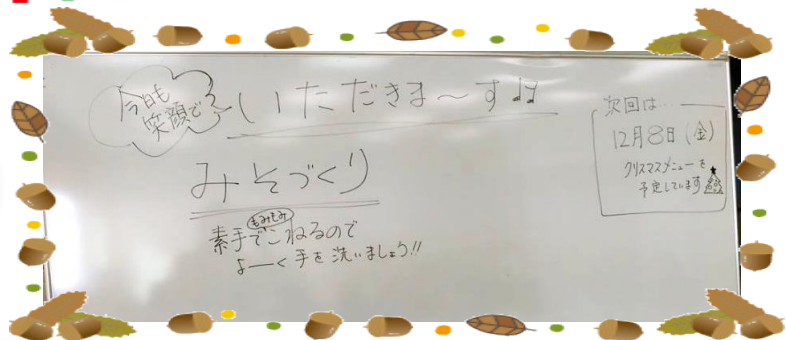 今日も
笑顔で
いただきま〜す♪♫
みそづくり
もみもみ
素手でこねるので
よーく手を洗いましょう!!
次回は…
12月8日(金)
クリスマスメニューを
予定しています